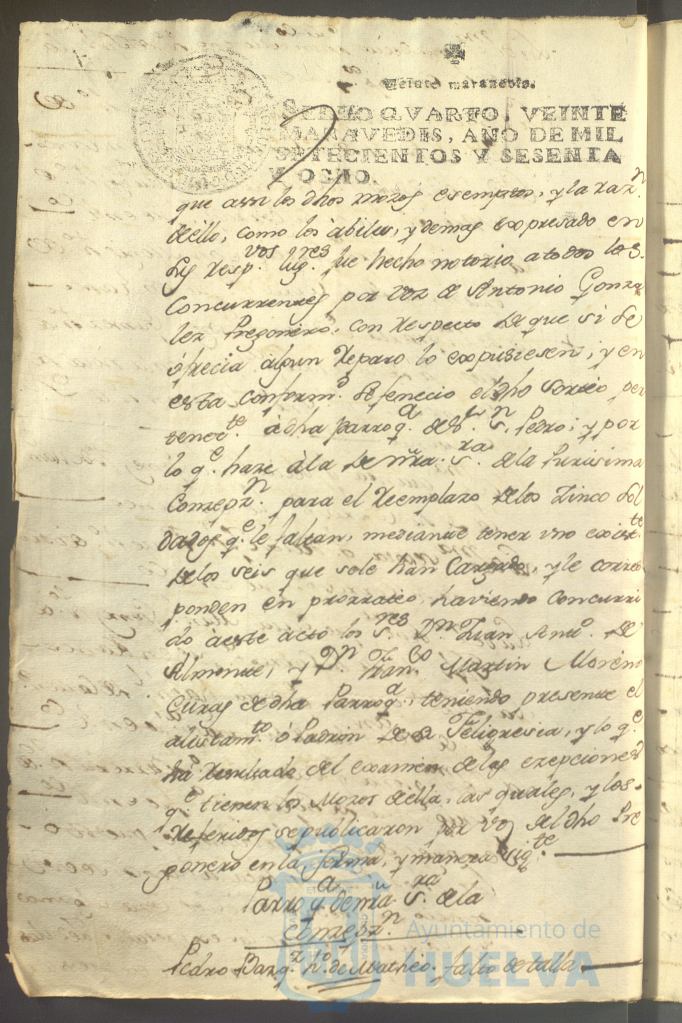 Veinte maravedis.
SELLO QVARTO, VEINTE
MARAVEDIS, AÑO DE MIL
SETECIENTOS Y SESENTA
Y OCHO.
que assi los dhos mozos exemptos, y la raz.n
de ello, como los abiles, y demas expresado en
sus resp.vos lug.res fue hecho notorio a todos los
Concurrentes por voz de Antonio Gonza
lez Pregonero, con respecto de que si se
ofrecia algun Reparo lo expusiesen; y en
esta conform.d se fenecio el dho Sorteo per
tenec.te à dha Parroq.a de S.r S.n Pedro; y por
lo q.e haze à la de nra. S.ra de la Purisima
Conzepz.n para el Reemplazo de los Zinco Sol
dados q.e le faltan, mediante tener vno exist.te
de los seis que se le han Cargado, y le corres
ponden en prorrateo, haviendo Concurri
do à este acto los S.res D.n Juan Ant.o de
Almonte, y D.n Fran.co Martin Moreno
Curas de dha Parroq.a, teniendo presente el
alistam.to ò Padron de su Feligresia, y lo q.e
ha resultado del examen de las exepciones
q.e tienen los Mozos de ella, las quales, y los
referidos se publicaron por voz del dho Pre
gonero en la forma, y manera sig.te
Parroq.a de nra S.ra de la
Conzepz.n
Pedro Barq. h.o de Matheo. falto de talla
Ayuntamiento de
HUELVA